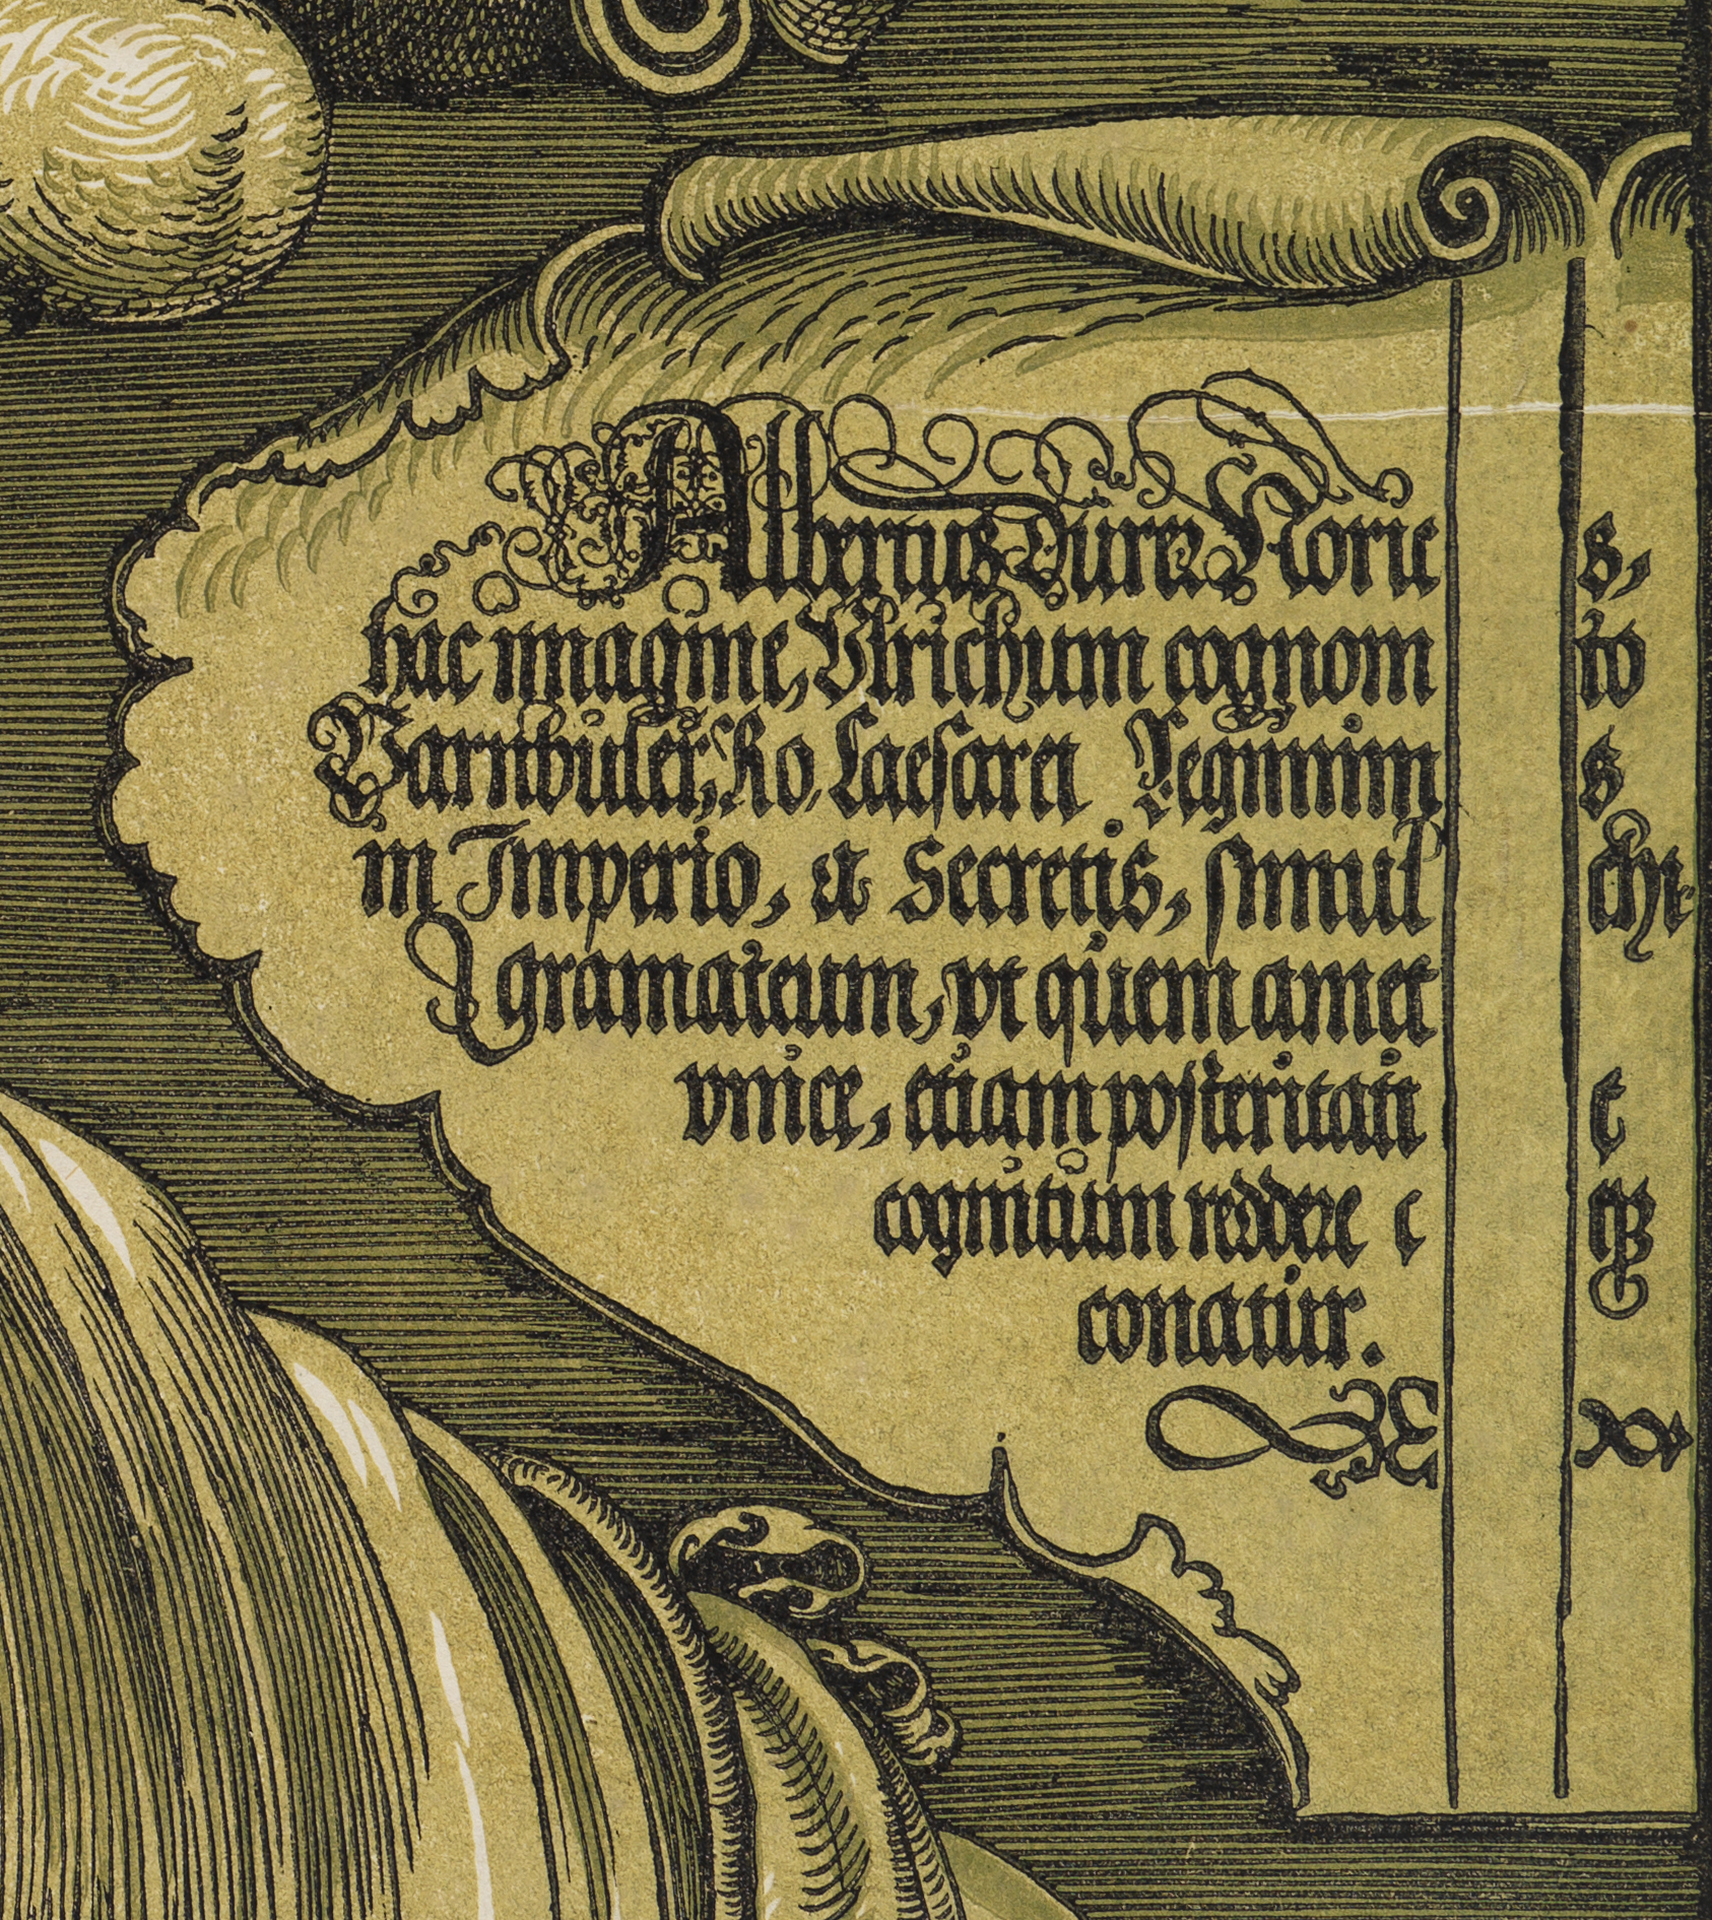 Albertus Durer Noric s,
hac imagine, Vlrichum cognom to
Varnbuler, Ro. Caesarei Regimini s
in Imperio, a Secretis, simul chi-
gramateum, vt quem amet
vnice, etiam posteritati t
cognitum reddere c tqꝫ
conatur.